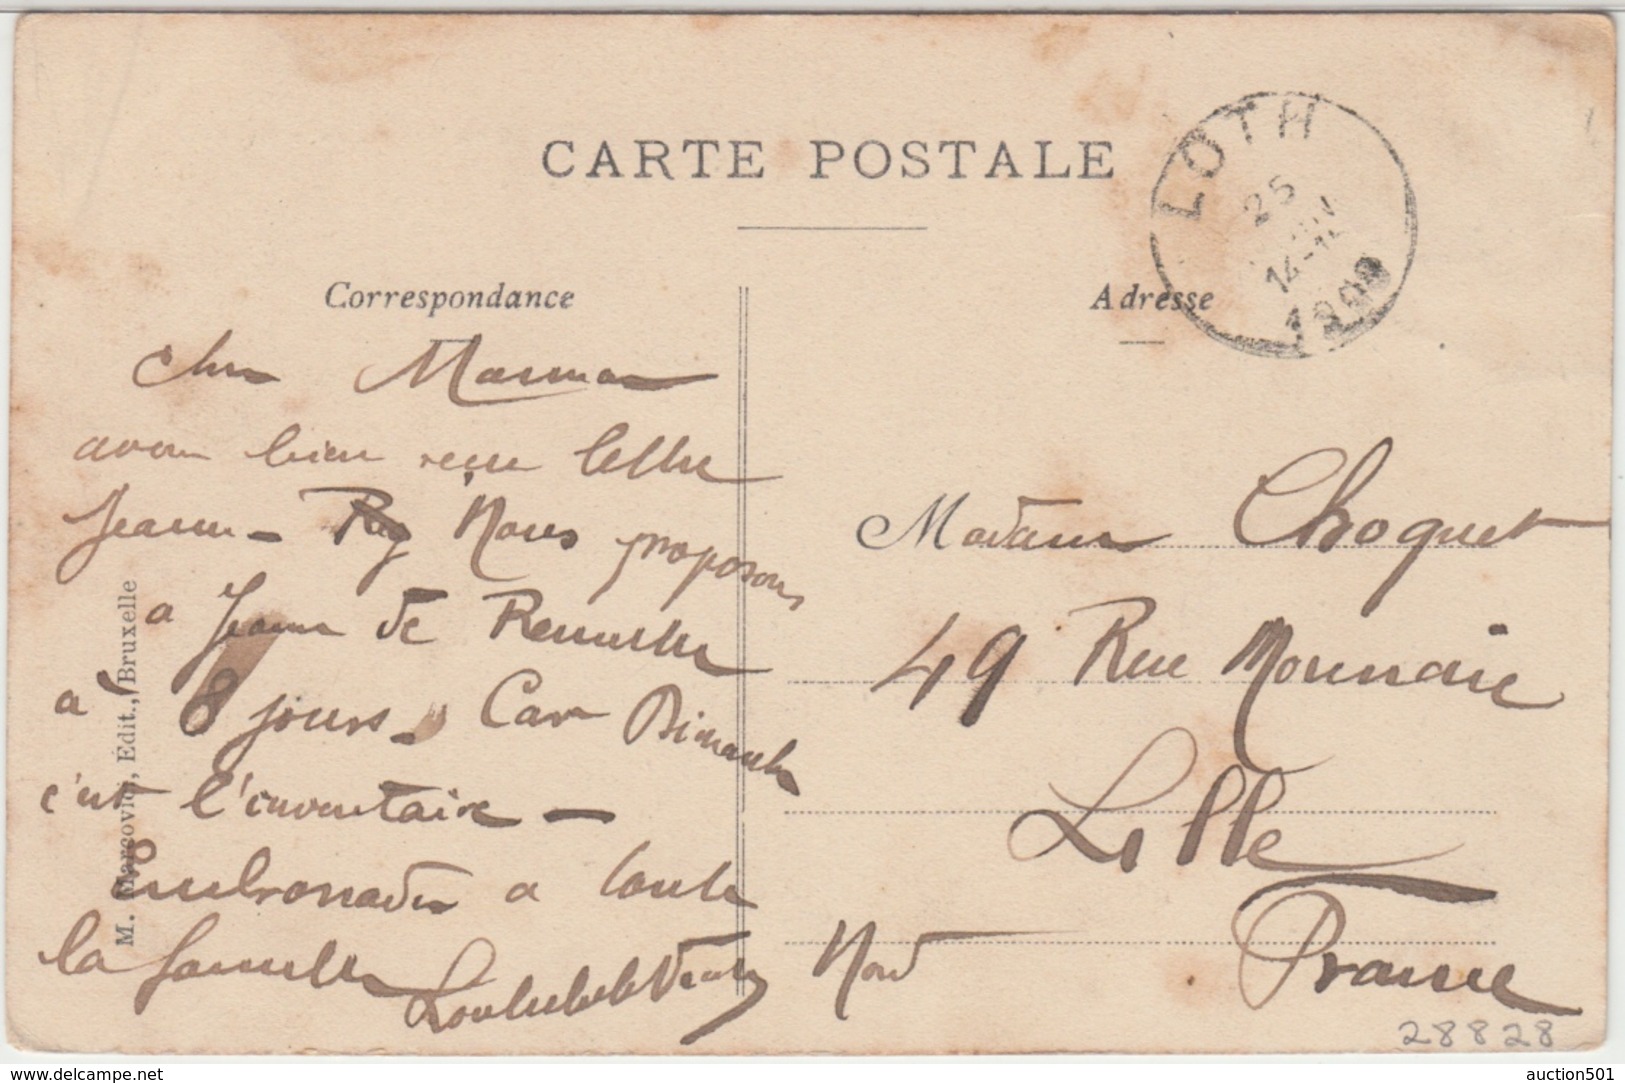 CARTE POSTALE
LOTH
25
14-15
1909
Correspondance
Adresse
cher Maman
avons bien reçu lettre
Jeanne - Nous proposons
a Jeanne de Remettre
a 8 jours - Car Dimanche
c'est l'inventaire -
Embrassades a toute
la famille
Madame Choquet
49 Rue Monnaie
Lille
Nord France
M. Marcovici, Edit., Bruxelle
28828
www.delcampe.net
auction501